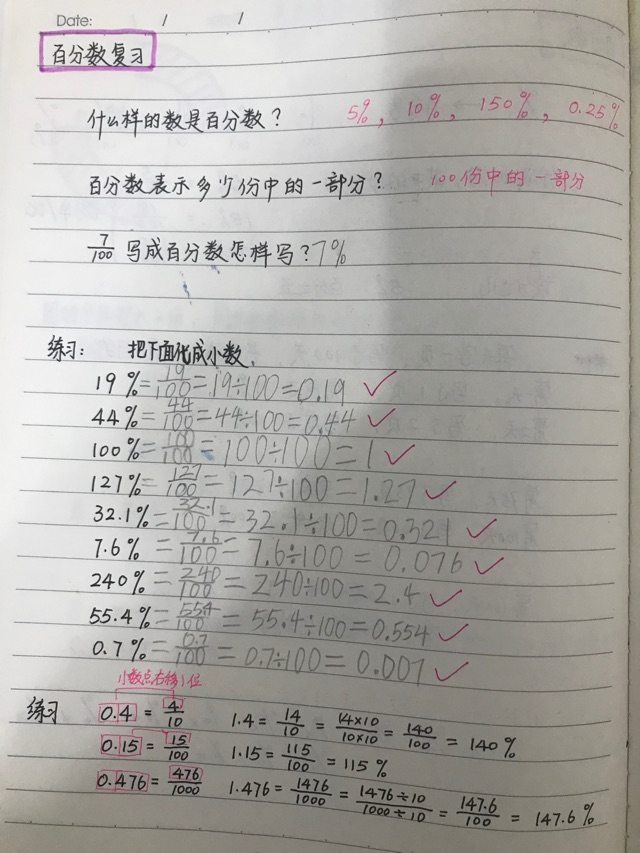 Date: / /
百分数复习
什么样的数是百分数？ 5%, 10%, 150%, 0.25%
百分数表示多少份中的一部分？ 100份中的一部分
7/100 写成百分数怎样写？7%
练习： 把下面化成小数.
19%=19/100=19÷100=0.19 ✓
44%=44/100=44÷100=0.44 ✓
100%=100/100=100÷100=1 ✓
127%=127/100=127÷100=1.27 ✓
32.1%=32.1/100=32.1÷100=0.321 ✓
7.6%=7.6/100=7.6÷100=0.076 ✓
240%=240/100=240÷100=2.4 ✓
55.4%=55.4/100=55.4÷100=0.554 ✓
0.7%=0.7/100=0.7÷100=0.007 ✓
小数点右移1位
练习 0.4=4/10 1.4=14/10=14×10/10×10=140/100=140%
0.15=15/100 1.15=115/100=115%
0.476=476/1000 1.476=1476/1000=1476÷10/1000÷10=147.6/100=147.6%